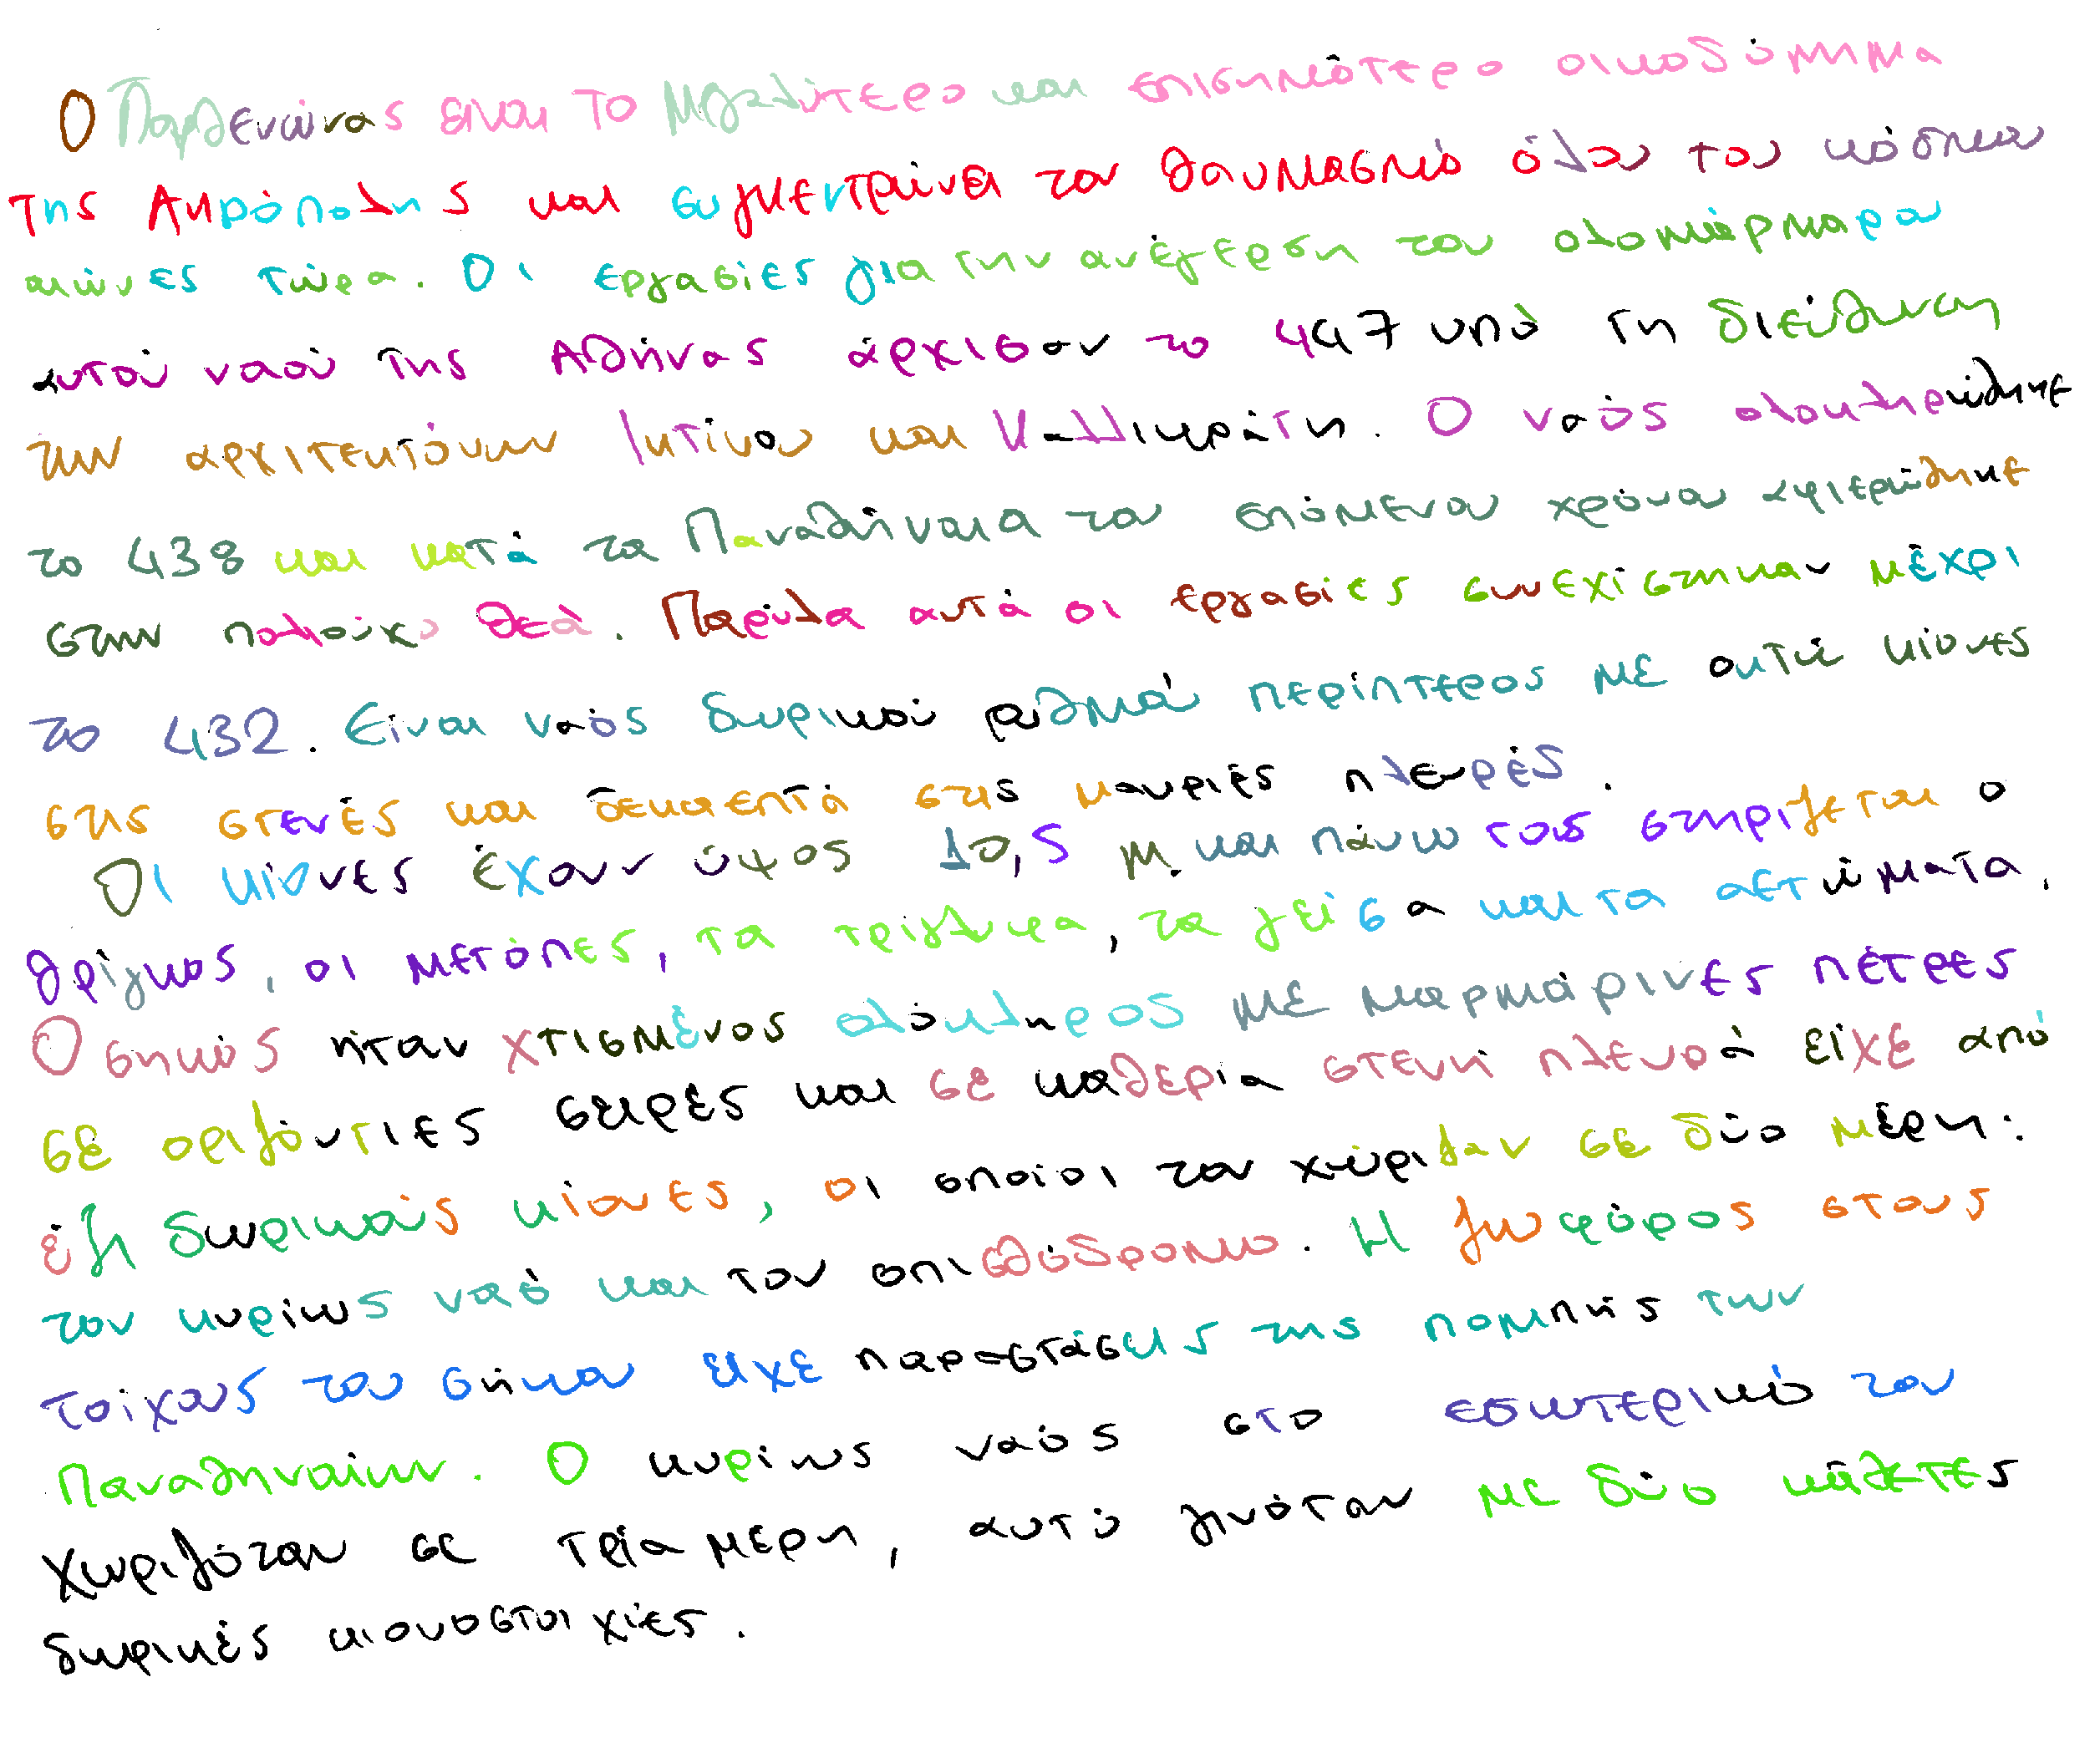 Ο Παρθενώνας είναι το μεγαλύτερο και επισημότερο οικοδόμημα
της Ακρόπολης και συγκεντρώνει τον θαυμασμό όλου του κόσμου
αιώνες τώρα. Οι εργασίες για την ανέγερση του ολομάρμαρου
αυτού ναού της Αθήνας άρχισαν το 447 υπό τη διεύθυνση
των αρχιτεκτόνων Ικτίνου και Καλλικράτη. Ο ναός ολοκληρώθηκε
το 438 και κατά τα Παναθήναια του επόμενου χρόνου αφιερώθηκε
στην πολιούχο θεά. Παρόλα αυτά οι εργασίες συνεχίστηκαν μέχρι
το 432. Είναι ναός δωρικού ρυθμού περίπτερος με οκτώ κίονες
στις στενές και δεκαεπτά στις μακριές πλευρές.
Οι κίονες έχουν ύψος 10,5 μ. και πάνω τους στηρίζεται ο
θρίγκος, οι μετόπες, τα τρίγλυφα, τα γείσα και τα αετώματα.
Ο σηκός ήταν χτισμένος ολόκληρος με μαρμάρινες πέτρες
σε οριζόντιες σειρές και σε καθεμία στενή πλευρά είχε από
έξι δωρικούς κίονες, οι οποίοι τον χώριζαν σε δύο μέρη:
τον κυρίως ναό και τον οπισθόδρομο. Η ζωφόρος στους
τοίχους του σηκού είχε παραστάσεις της πομπής των
Παναθηναίων. Ο κυρίως ναός στο εσωτερικό του
χωριζόταν σε τρία μέρη, αυτό γινόταν με δύο κάθετες
δωρικές κιονοστοιχίες.